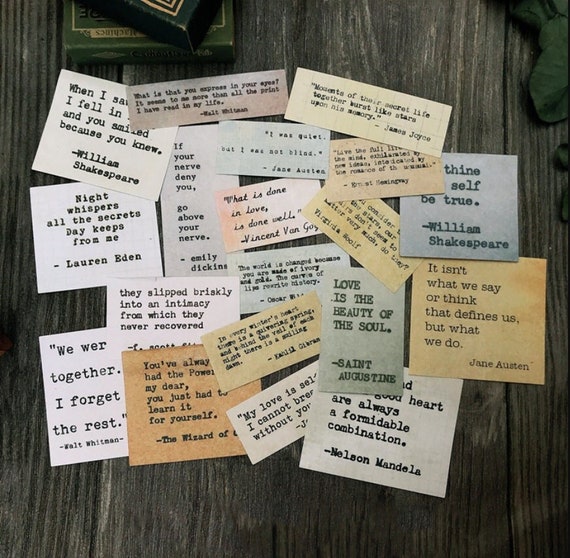 Machines
When I sa
I fell i
and you smiled
because you knew.
-William
Shakespeare
What is that you express in your eyes?
It seems to me more than all the print
I have read in my life.
-Walt Whitman
"Moments of their secret life
together burst like stars
upon his memory."
- James Joyce
"I was quiet.
but I was not blind."
- Jane Austen
If
your
nerve
deny
you,
go
above
your
nerve.
- emily
dickins
"Live the full life
the mind, exhilarated by
new ideas, intoxicated by
the romance of the unusual."
- Ernest Hemingway
thine
self
be true.
-William
Shakespeare
Night
whispers
all the secrets
Day keeps
from me
- Lauren Eden
"What is done
in love,
is done well."
-Vincent Van Gog
consider
the stars, our
don't seem to
matter very much, do they?
Virginia Woolf
The world is changed because
you are made of ivory
and gold. The curves of
lips rewrite history.
- Oscar Wil
It isn't
what we say
or think
that defines us,
but what
we do.
Jane Austen
LOVE
IS THE
BEAUTY OF
THE SOUL.
-SAINT
AUGUSTINE
they slipped briskly
into an intimacy
from which they
never recovered
In every winter's heart
there is a quivering spring,
and behind the veil of each
night there is a smiling
dawn
- Kahlil Gibran
"We wer
together.
I forget
the rest."
-Walt Whitman-
You've alway
had the Power
my dear,
you just had to
learn it
for yourself.
-The Wizard of
"My love is sel
I cannot breat
without yo
-Jo
good heart
are always
a formidable
combination.
-Nelson Mandela